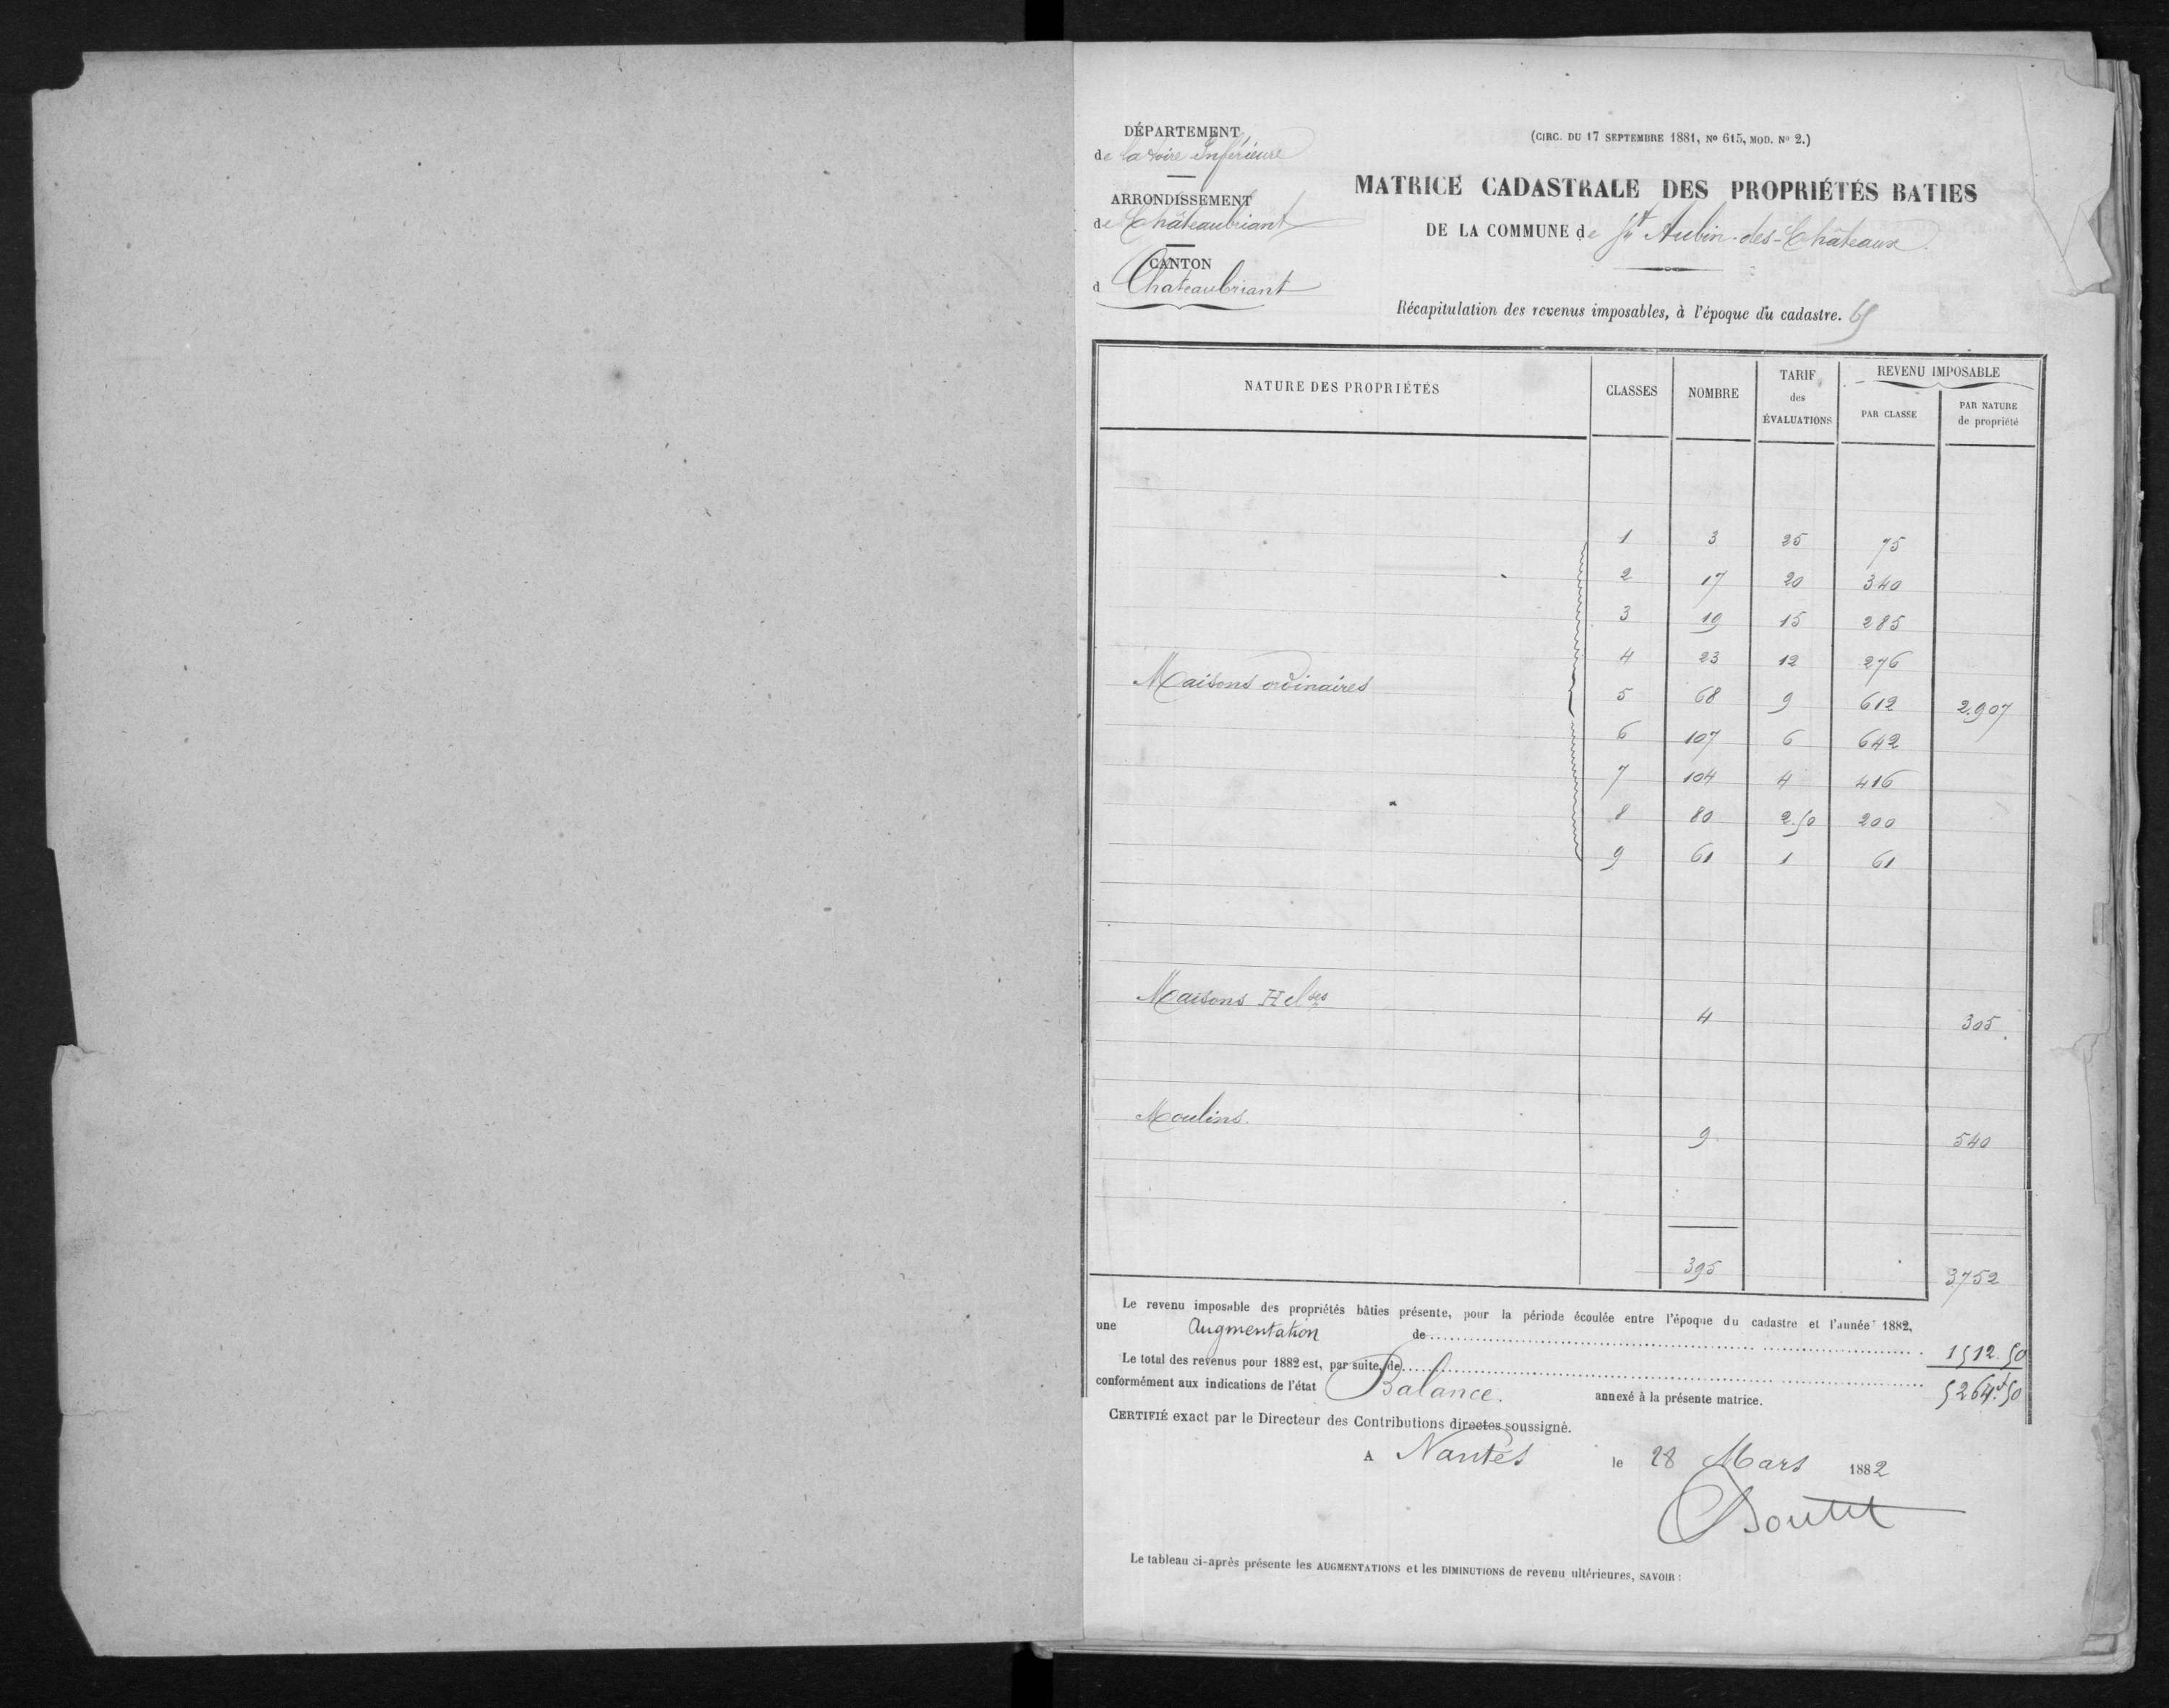 DÉPARTEMENT
de la Loire Inférieure
ARRONDISSEMENT
de Châteaubriant
CANTON
d Chateaubriant
(CIRC. DU 17 SEPTEMBRE 1881, No 615, MOD. No 2.)
MATRICE CADASTRALE DES PROPRIÉTÉS BATIES
DE LA COMMUNE de St Aubin-des-Châteaux
Récapitulation des revenus imposables, à l'époque du cadastre.
NATURE DES PROPRIÉTÉS CLASSES NOMBRE TARIF des ÉVALUATIONS REVENU IMPOSABLE
PAR CLASSE PAR NATURE de propriété
1 3 25 75
2 17 20 340
3 19 15 285
4 23 12 276
Maisons ordinaires 5 68 9 612 2.907
6 107 6 642
7 104 4 416
8 80 2.50 200
9 61 1 61
Maisons H Cl ses 4 305
Moulins. 9 540
395 3752
Le revenu imposable des propriétés bâties présente, pour la période écoulée entre l'époque du cadastre et l'année 1882,
une Augmentation de 1512.50
Le total des revenus pour 1882 est, par suite, de 5264f.50
conformément aux indications de l'état Balance. annexé à la présente matrice.
CERTIFIÉ exact par le Directeur des Contributions directes soussigné.
A Nantes le 28 Mars 1882
Le tableau ci-après présente les AUGMENTATIONS et les DIMINUTIONS de revenu ultérieures, SAVOIR :